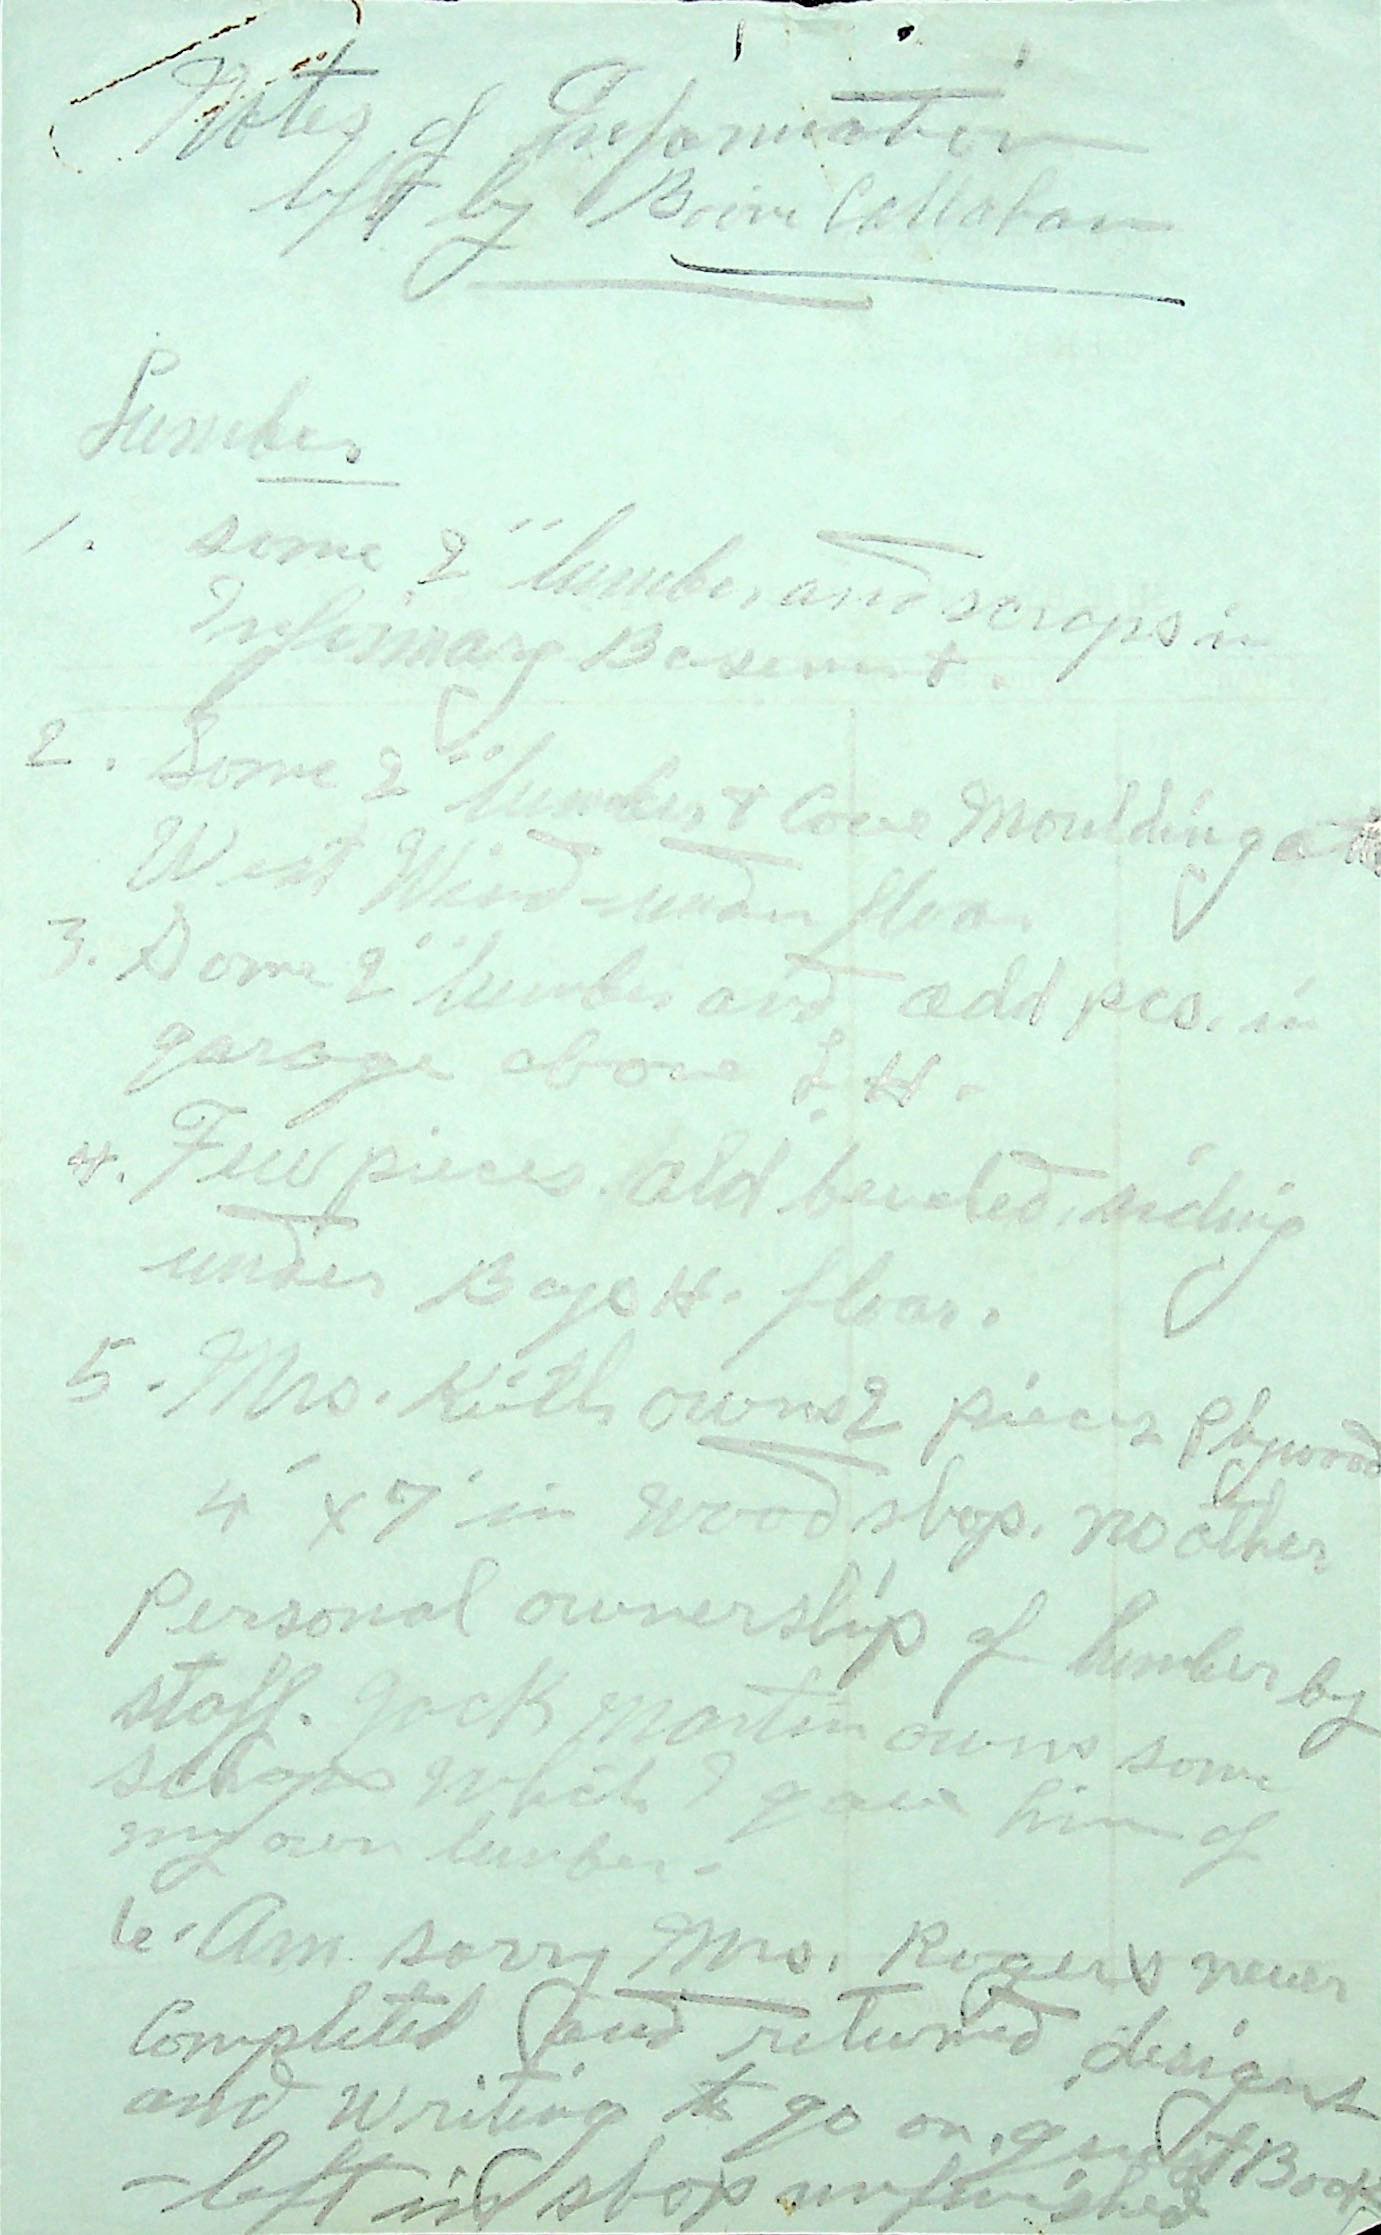 Notes of Information
left by Boone Callahan
Lumber
1. some 2" lumber and scraps in
Infirmary Basement.
2. Some 2" lumber & Cove Moulding at
West Wind - under floor
3. Some 2" lumber and odd pcs. in
garage above L.H.
4. Few pieces old beveled siding
under Boys H. floor.
5. Mrs. Keith owns 2 pieces Plywood
4' x 7' in wood shop. No other
Personal ownership of lumber by
staff. Jack Martin owns some
scraps which I gave him of
my own lumber.
6. Am sorry Mrs. Rogers never
Completed and returned designs
and writing to go on guest Book
- left in shop unfinished